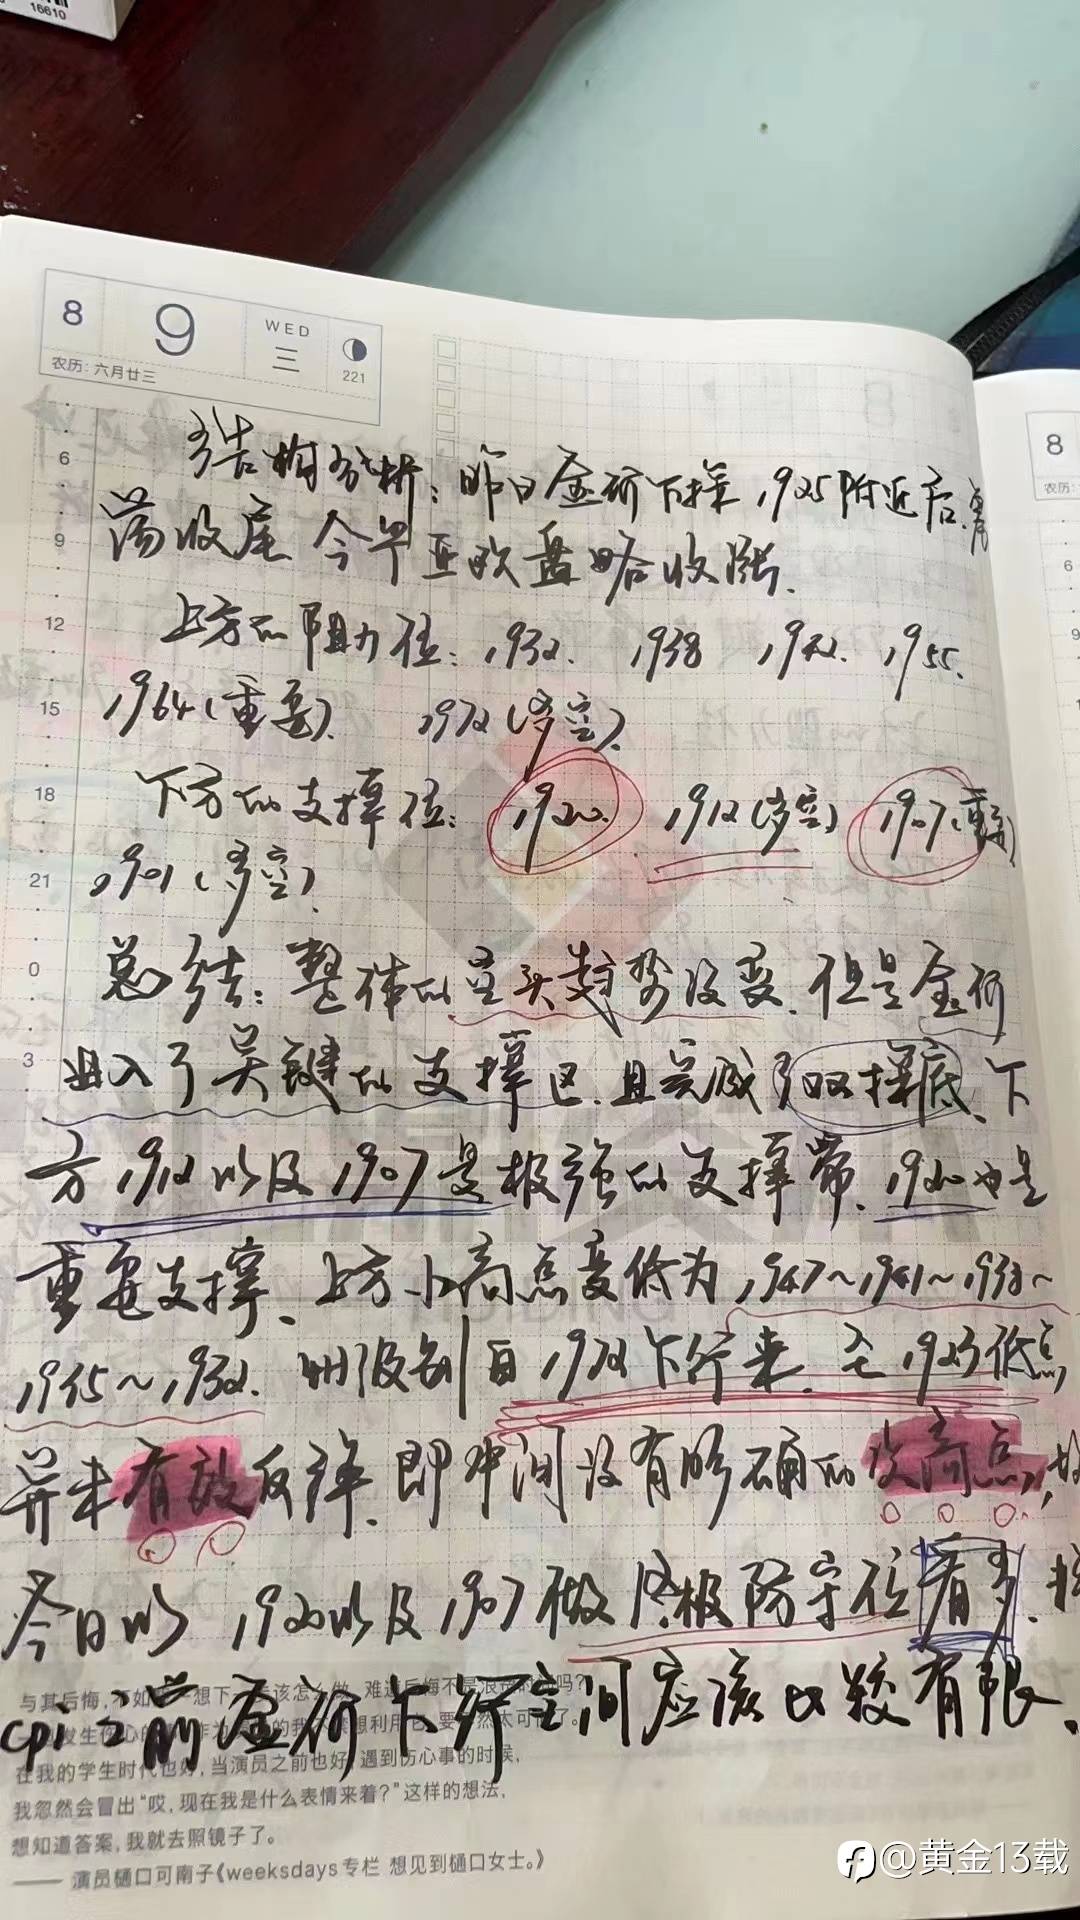 16610
8 9 WED 三 221
农历: 六月廿三
8
农历:
6
9
12
15
18
21
0
3
6
9
结构分析: 昨日金价下探1925附近后,震
荡收尾 今早亚欧盘略收涨.
上方的阻力位: 1932. 1938 1942. 1955.
1964(重要). 1972(多空).
下方的支撑位: 1920. 1912(多空) 1907(重要)
1901(多空).
总结: 整体的空头趋势没变. 但是金价
进入了关键的支撑区. 且完成了双探底. 下
方1912以及1907是极强的支撑带. 1920也是
重要支撑. 上方小高点变低为1947~1941~1938~
1935~1932. 级别自1972下行来. 至1923低点
并未有效反弹. 即中间没有明确的次高点,故
今日以1920以及1907做终极防守位看多.
cpi之前金价下行空间应该比较有限.
与其后悔, 不如想一想下 该怎么做。难道后悔不是浪费时间吗?
在我的学生时代也好, 当演员之前也好, 遇到伤心事的时候,
我忽然会冒出“哎, 现在我是什么表情来着?”这样的想法,
想知道答案, 我就去照镜子了。
—— 演员樋口可南子《weeksdays专栏 想见到樋口女士。》
@黄金13载